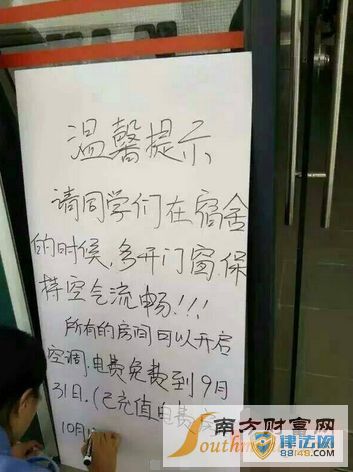 温馨提示
请同学们在宿舍
的时候,多开门窗,保
持空气流畅!!!
所有的房间可以开启
空调,电费免费到9月
31日.(已充值电费
10月
南方财富网
South
律法网
88148.com